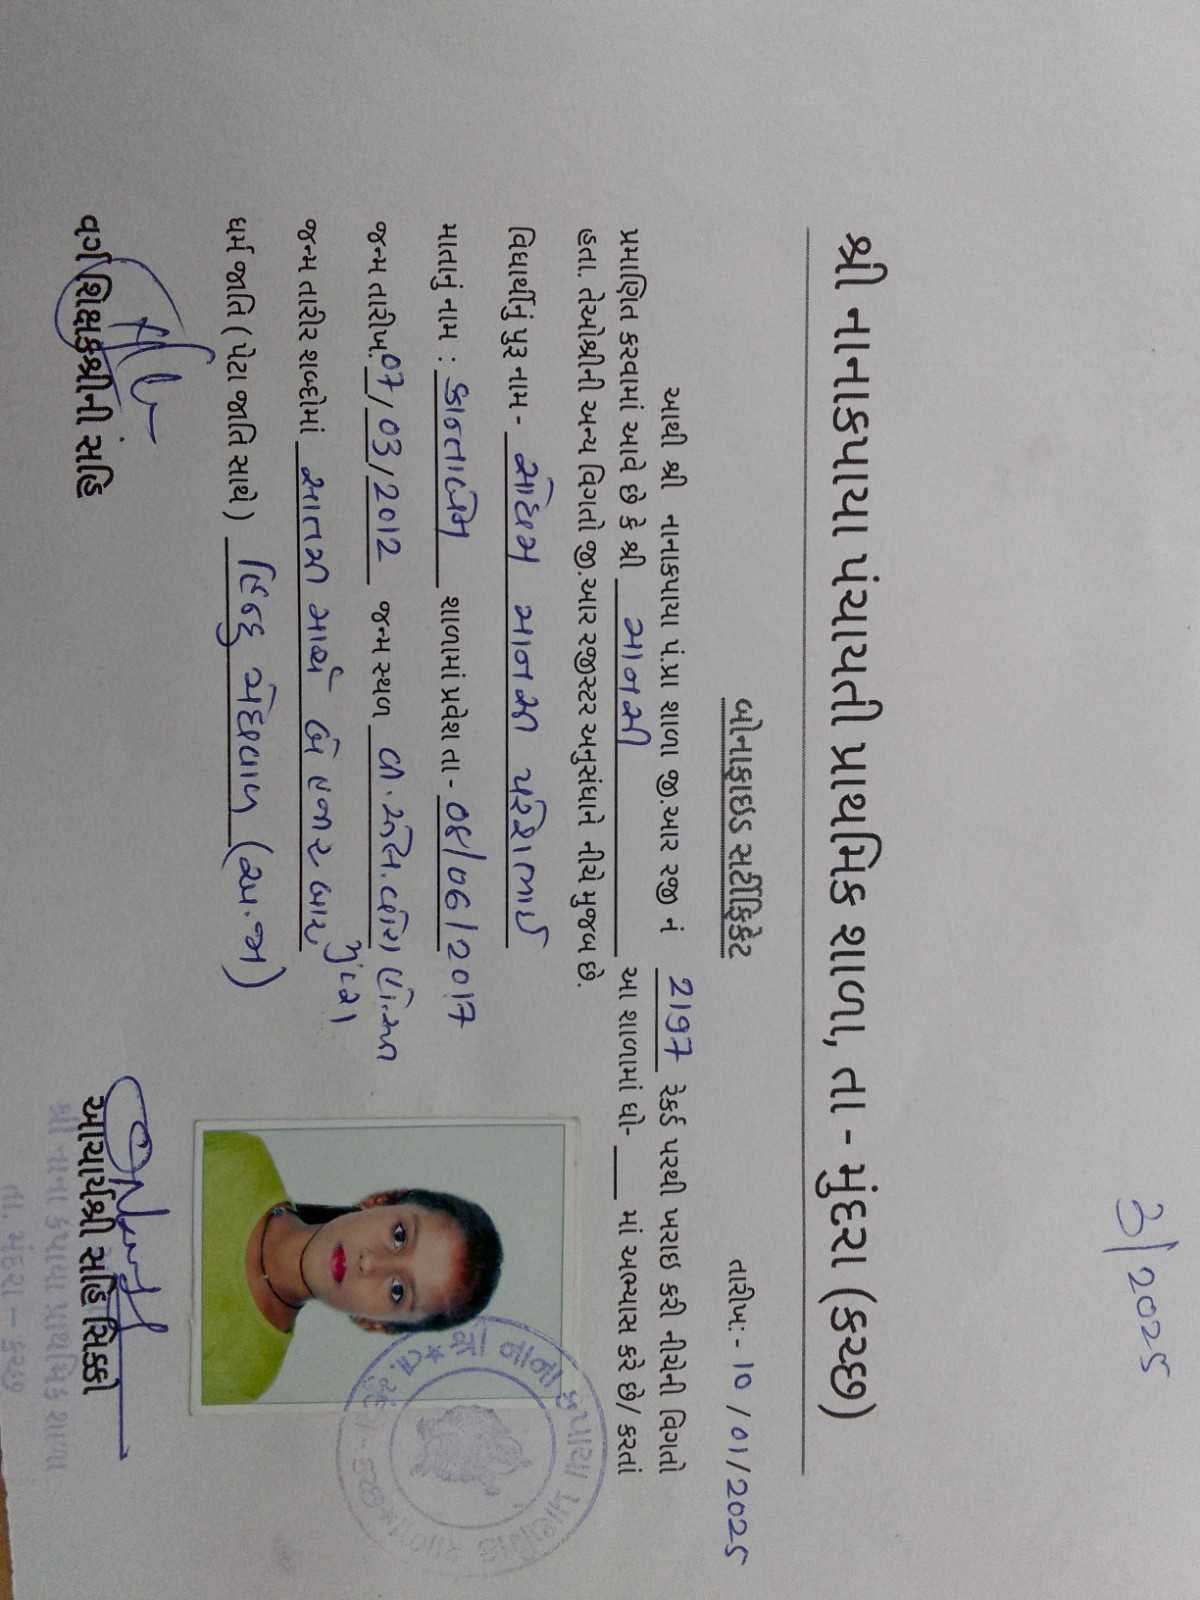 3/2025
શ્રી નાનાકપાયા પંચાયતી પ્રાથમિક શાળા, તા - મુંદરા (કચ્છ)
બોનાફાઇડ સર્ટીફિકેટ
તારીખ:- 10/01/2025
આથી શ્રી નાનાકપાયા પં.પ્રા શાળા જી.આર રજી નં 2197 રેકર્ડ પરથી ખરાઇ કરી નીચેની વિગતો
પ્રમાણિત કરવામાં આવે છે કે શ્રી માનસી આ શાળામાં ધો- ___ માં અભ્યાસ કરે છે/ કરતાં
હતા. તેઓશ્રીની અન્ય વિગતો જી.આર રજીસ્ટર અનુસંધાને નીચે મુજબ છે.
વિદ્યાર્થીનું પુરૂ નામ - માનસી પરેશભાઈ
માતાનું નામ : કાન્તાબેન શાળામાં પ્રવેશ તા - 08/06/2017
જન્મ તારીખ. 07/03/2012 જન્મ સ્થળ
જન્મ તારીર શબ્દોમાં સાતમી માર્ચ બે હજાર બાર
મુંદરા
ધર્મ જાતિ ( પેટા જાતિ સાથે ) હિન્દુ મેઘવાળ (અ.જા)
વર્ગ શિક્ષકશ્રીની સંહિ
આચાર્યશ્રી સહિ સિક્કો
શ્રી નાના કપાયા પ્રાથમિક શાળા
તા. મુંદરા - કચ્છ